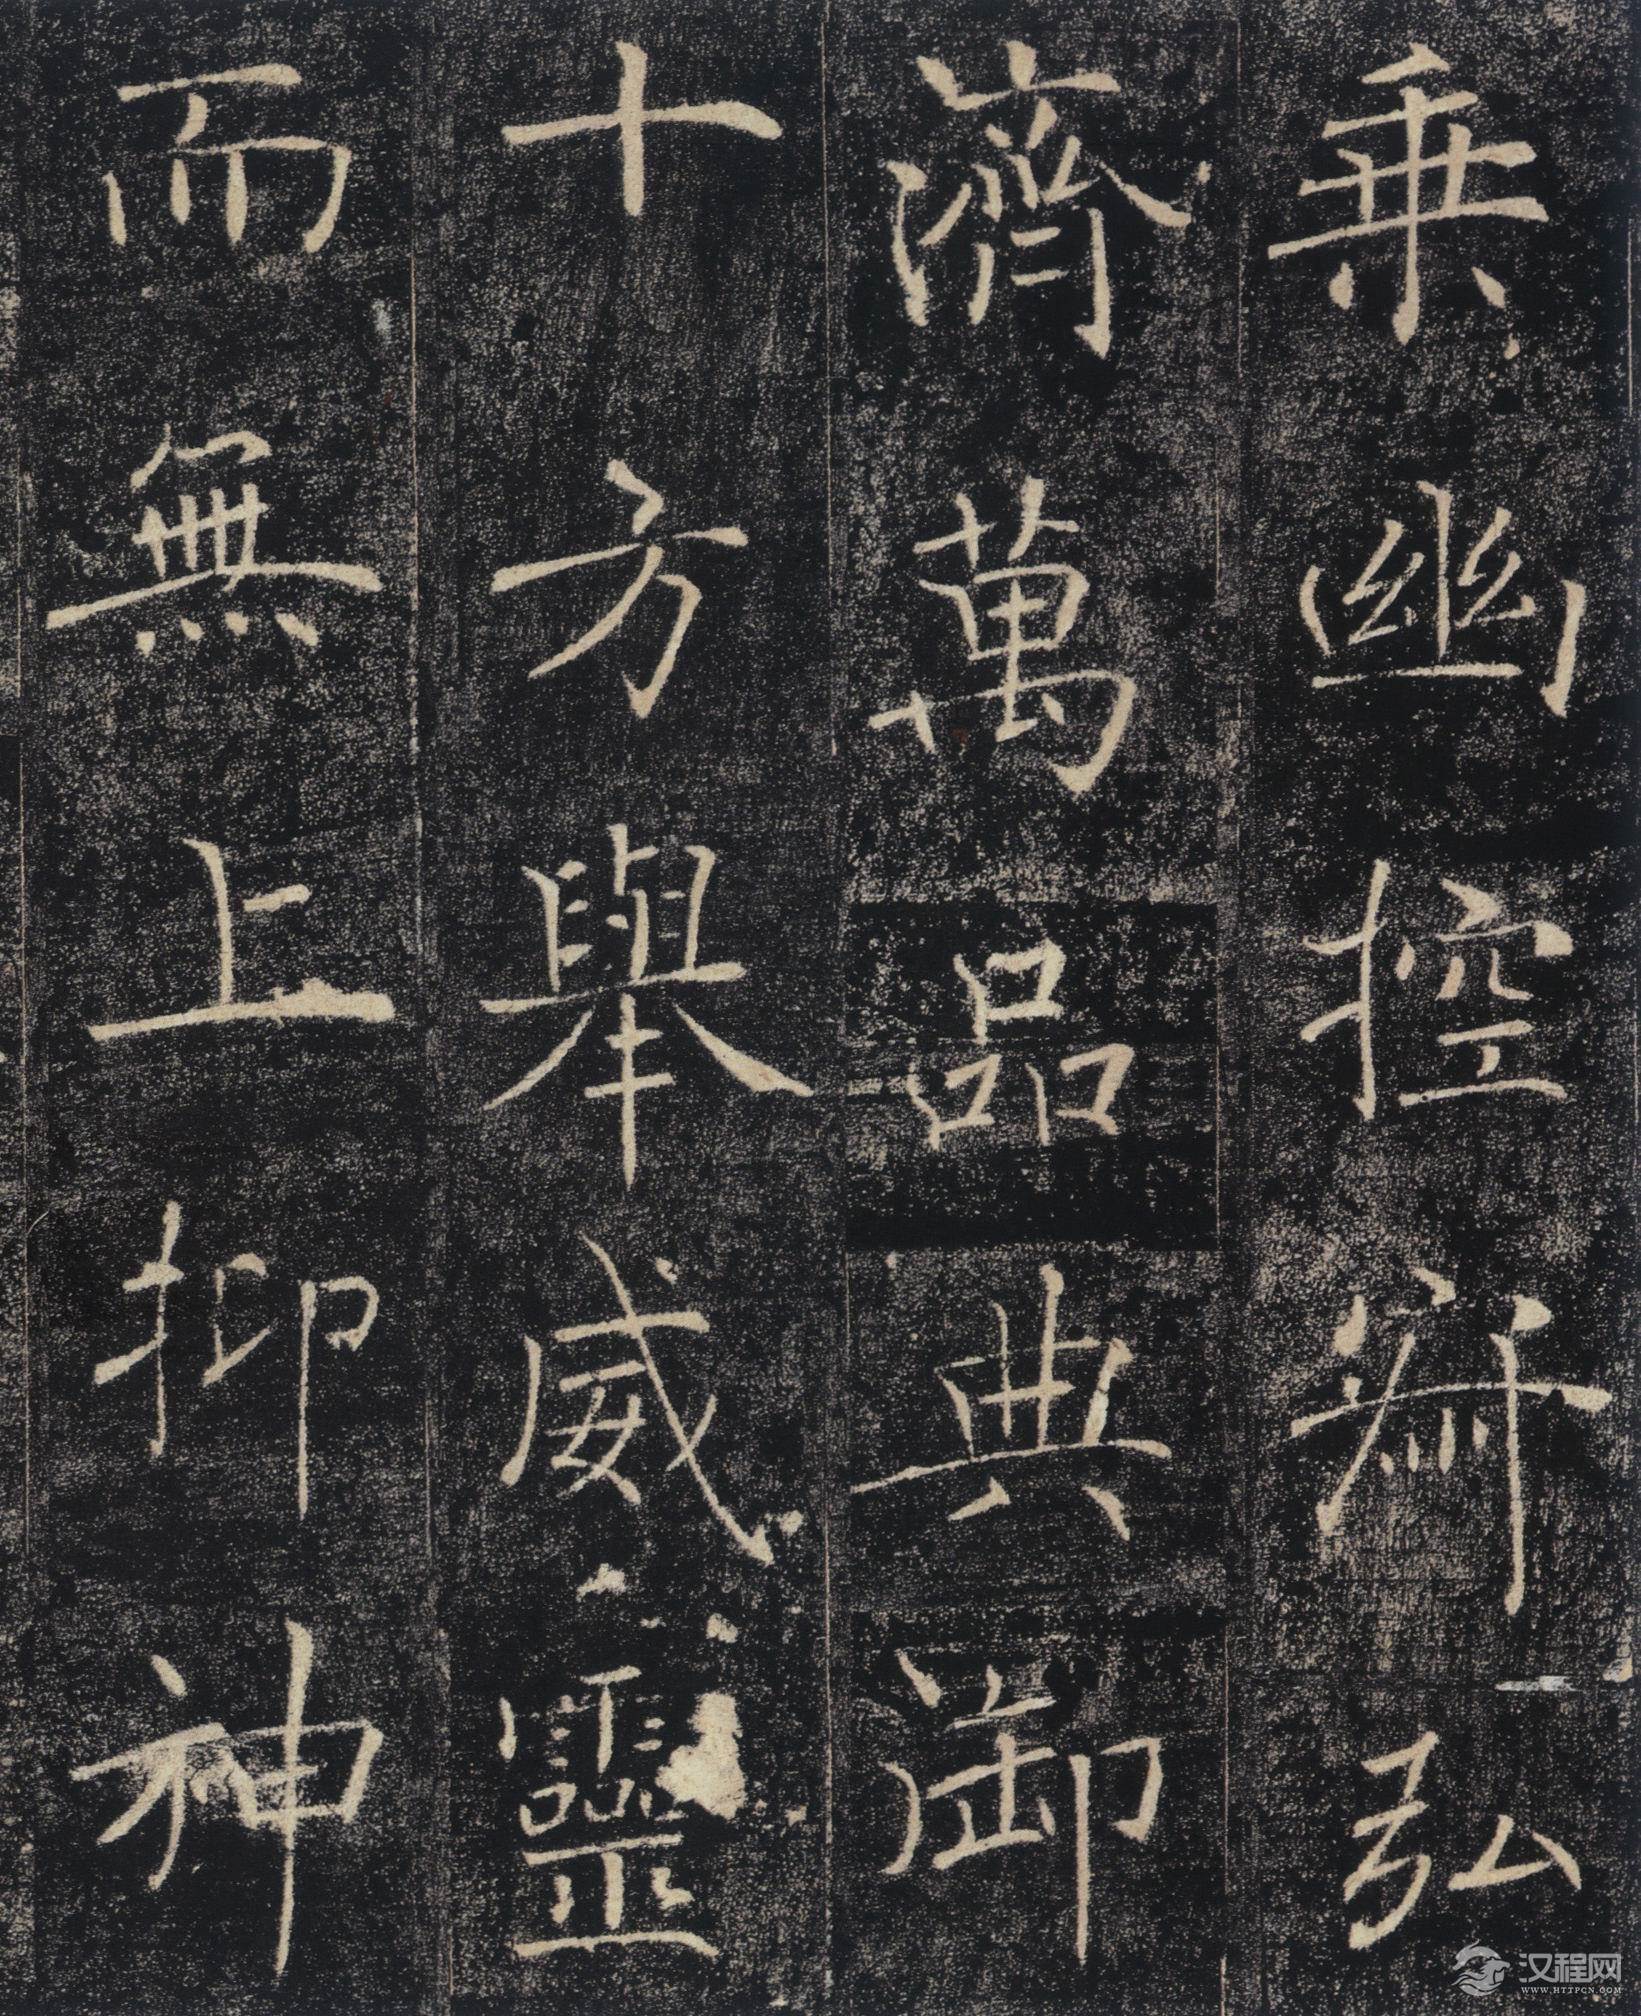 乗幽控寂弘
濟萬品典御
十方舉威靈
而無上抑神
汉程网
WWW.HTTPCN.COM